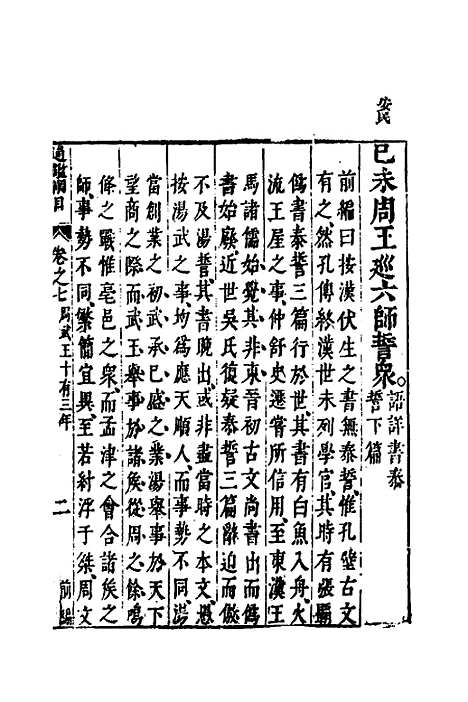 安民
己未周王巡六師誓衆。語詳書泰誓下篇
前編曰按漢伏生之書無泰誓惟孔壁古文
有之然孔傳終漢世未列學官其時有張霸
偽書泰誓三篇行於世其書有白魚入舟火
流王屋之事仲舒史遷嘗所信用至東漢王
馬諸儒始覺其非東晉初古文尚書出而偽
書始廢近世吳氏復疑泰誓三篇辭迫而傲
不及湯誓其書晚出或非盡當時之本文愚
按湯武之事均為應天順人而事勢不同湯
當創業之初武承已盛之業湯舉事於天下
望商之際而武王舉事於諸侯從周之餘鳴
條之戰惟亳邑之衆而孟津之會合諸侯之
師事勢不同繁簡宜異至若紂浮于桀周文
通鑑綱目 卷之七 周武王十有三年 二 前編